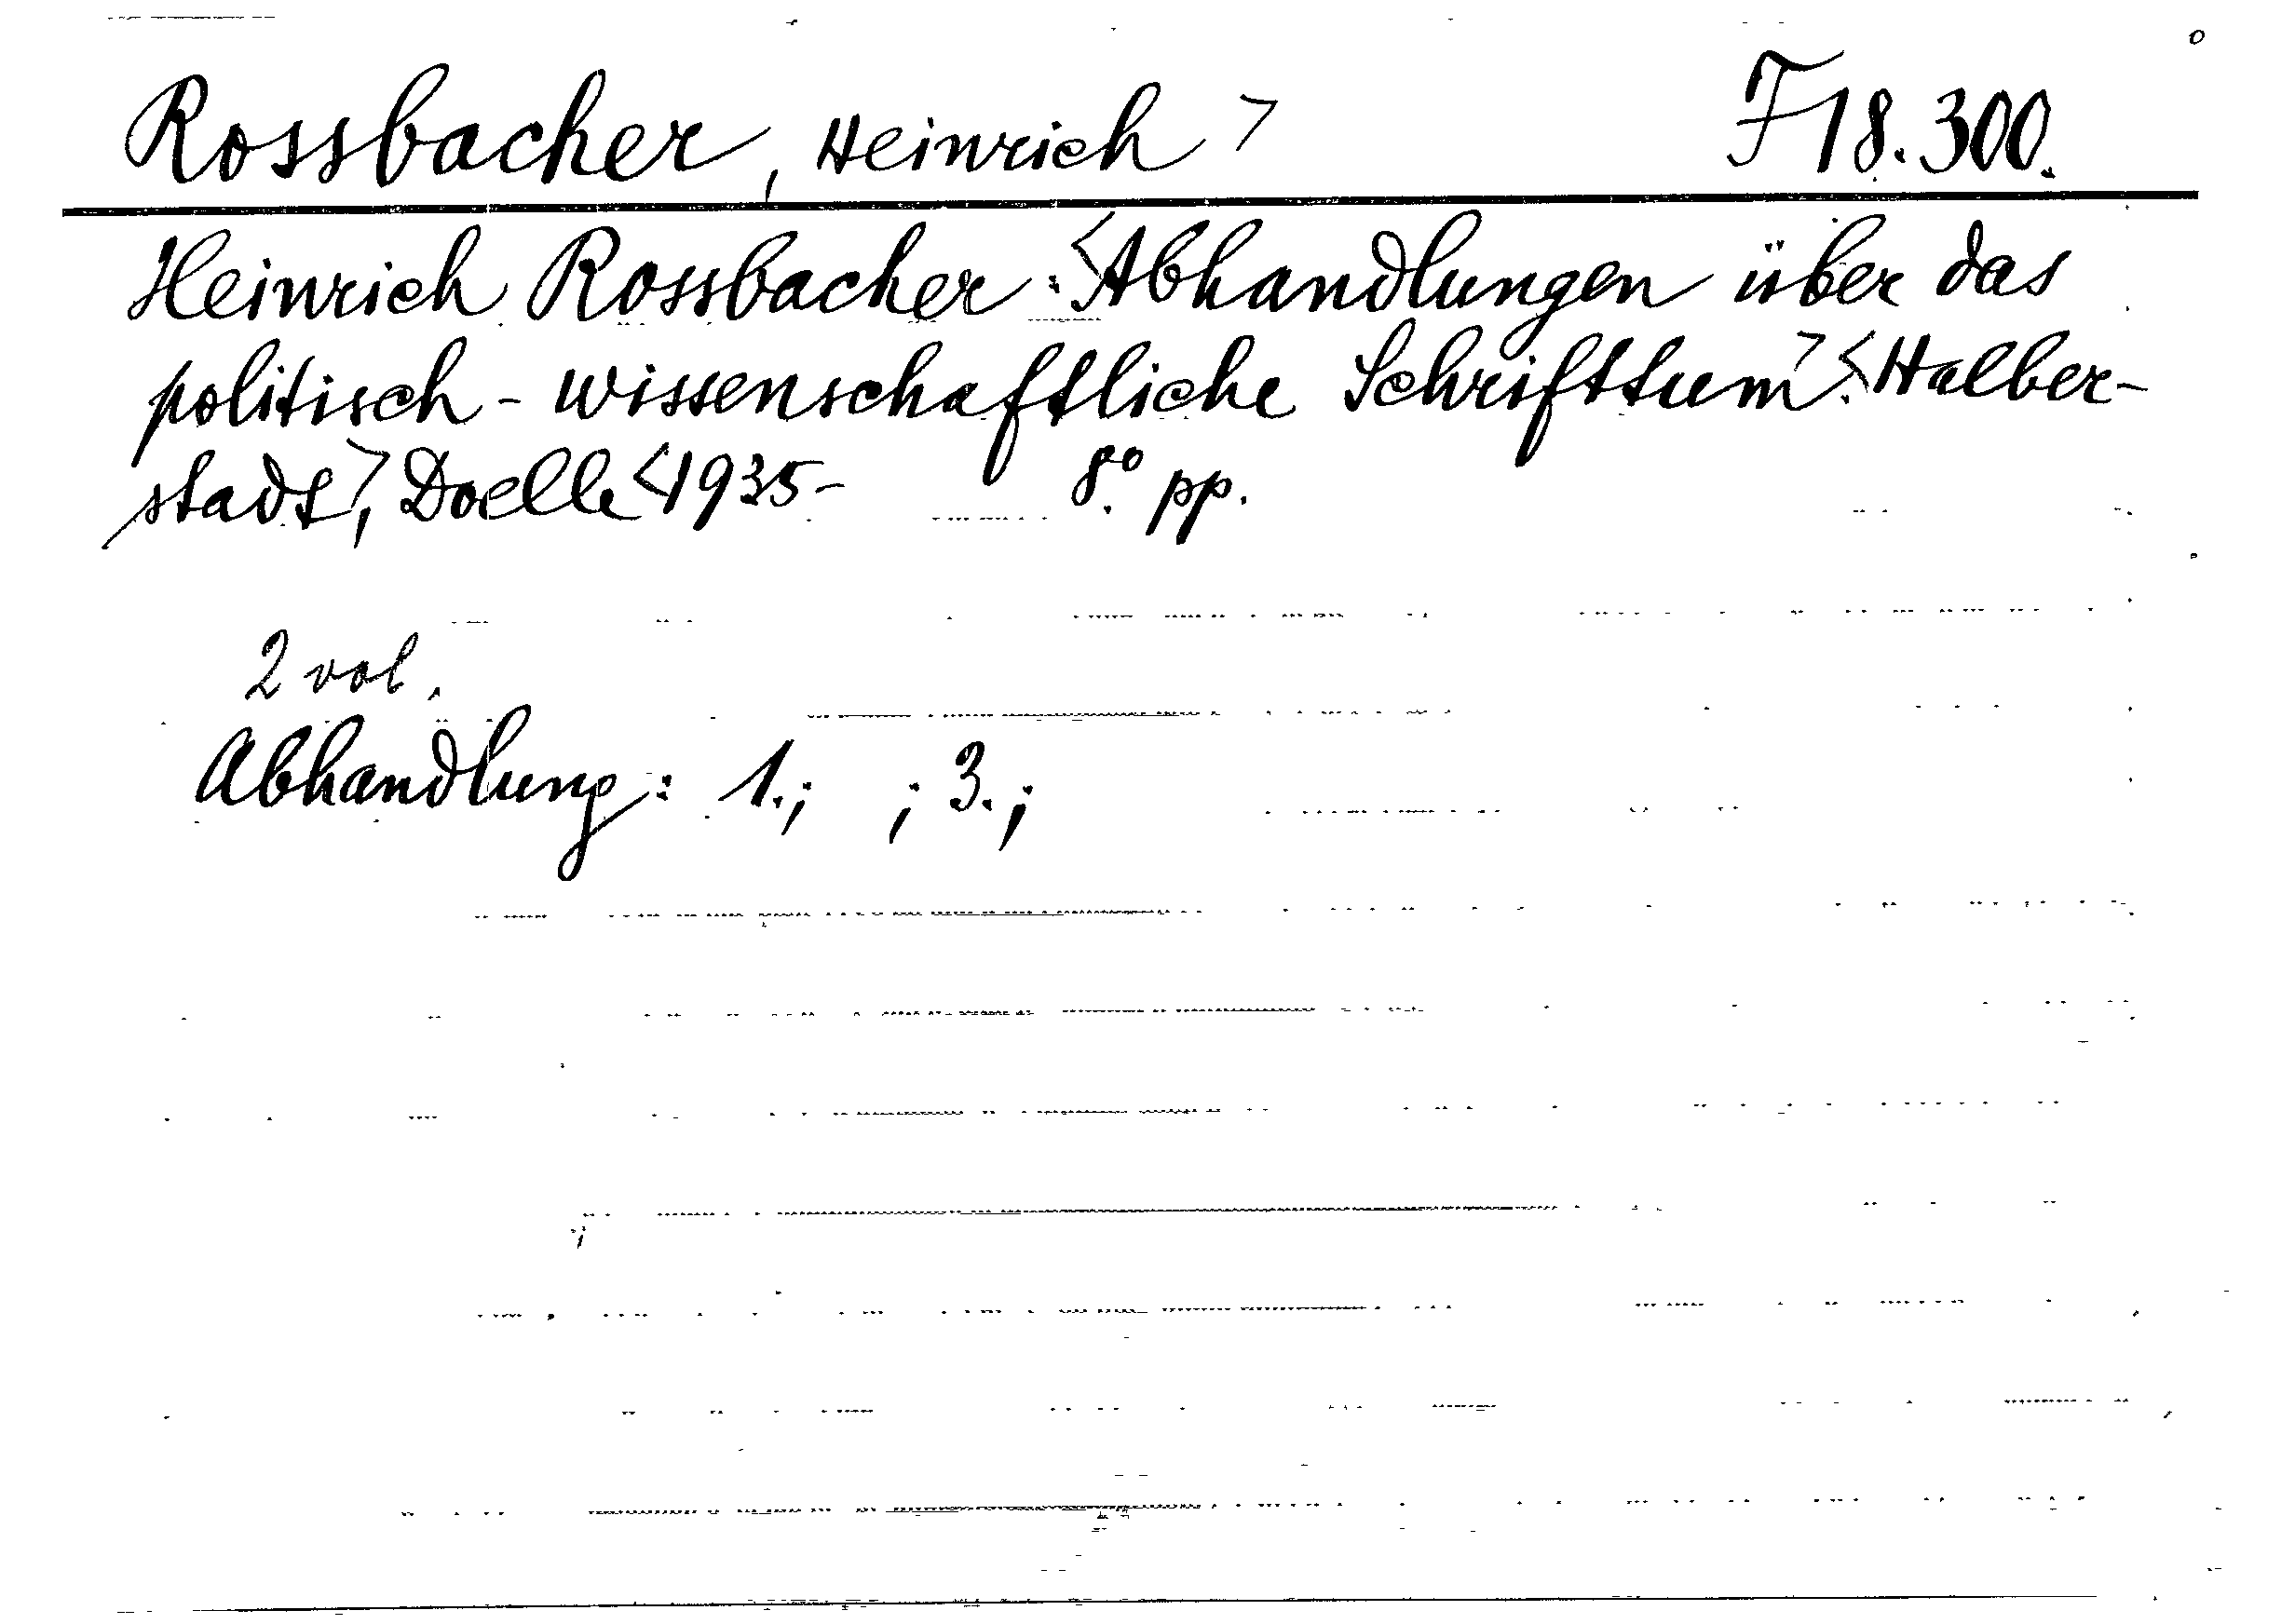 Rossbacher, Heinrich > F 18.300.
Heinrich Rossbacher: <Abhandlungen über das
politisch-wissenschaftliche Schrifttum>. <Halber-
stadt>, Doelle <1935- 8° pp.
2 vol.
Abhandlung: 1.; ; 3.;